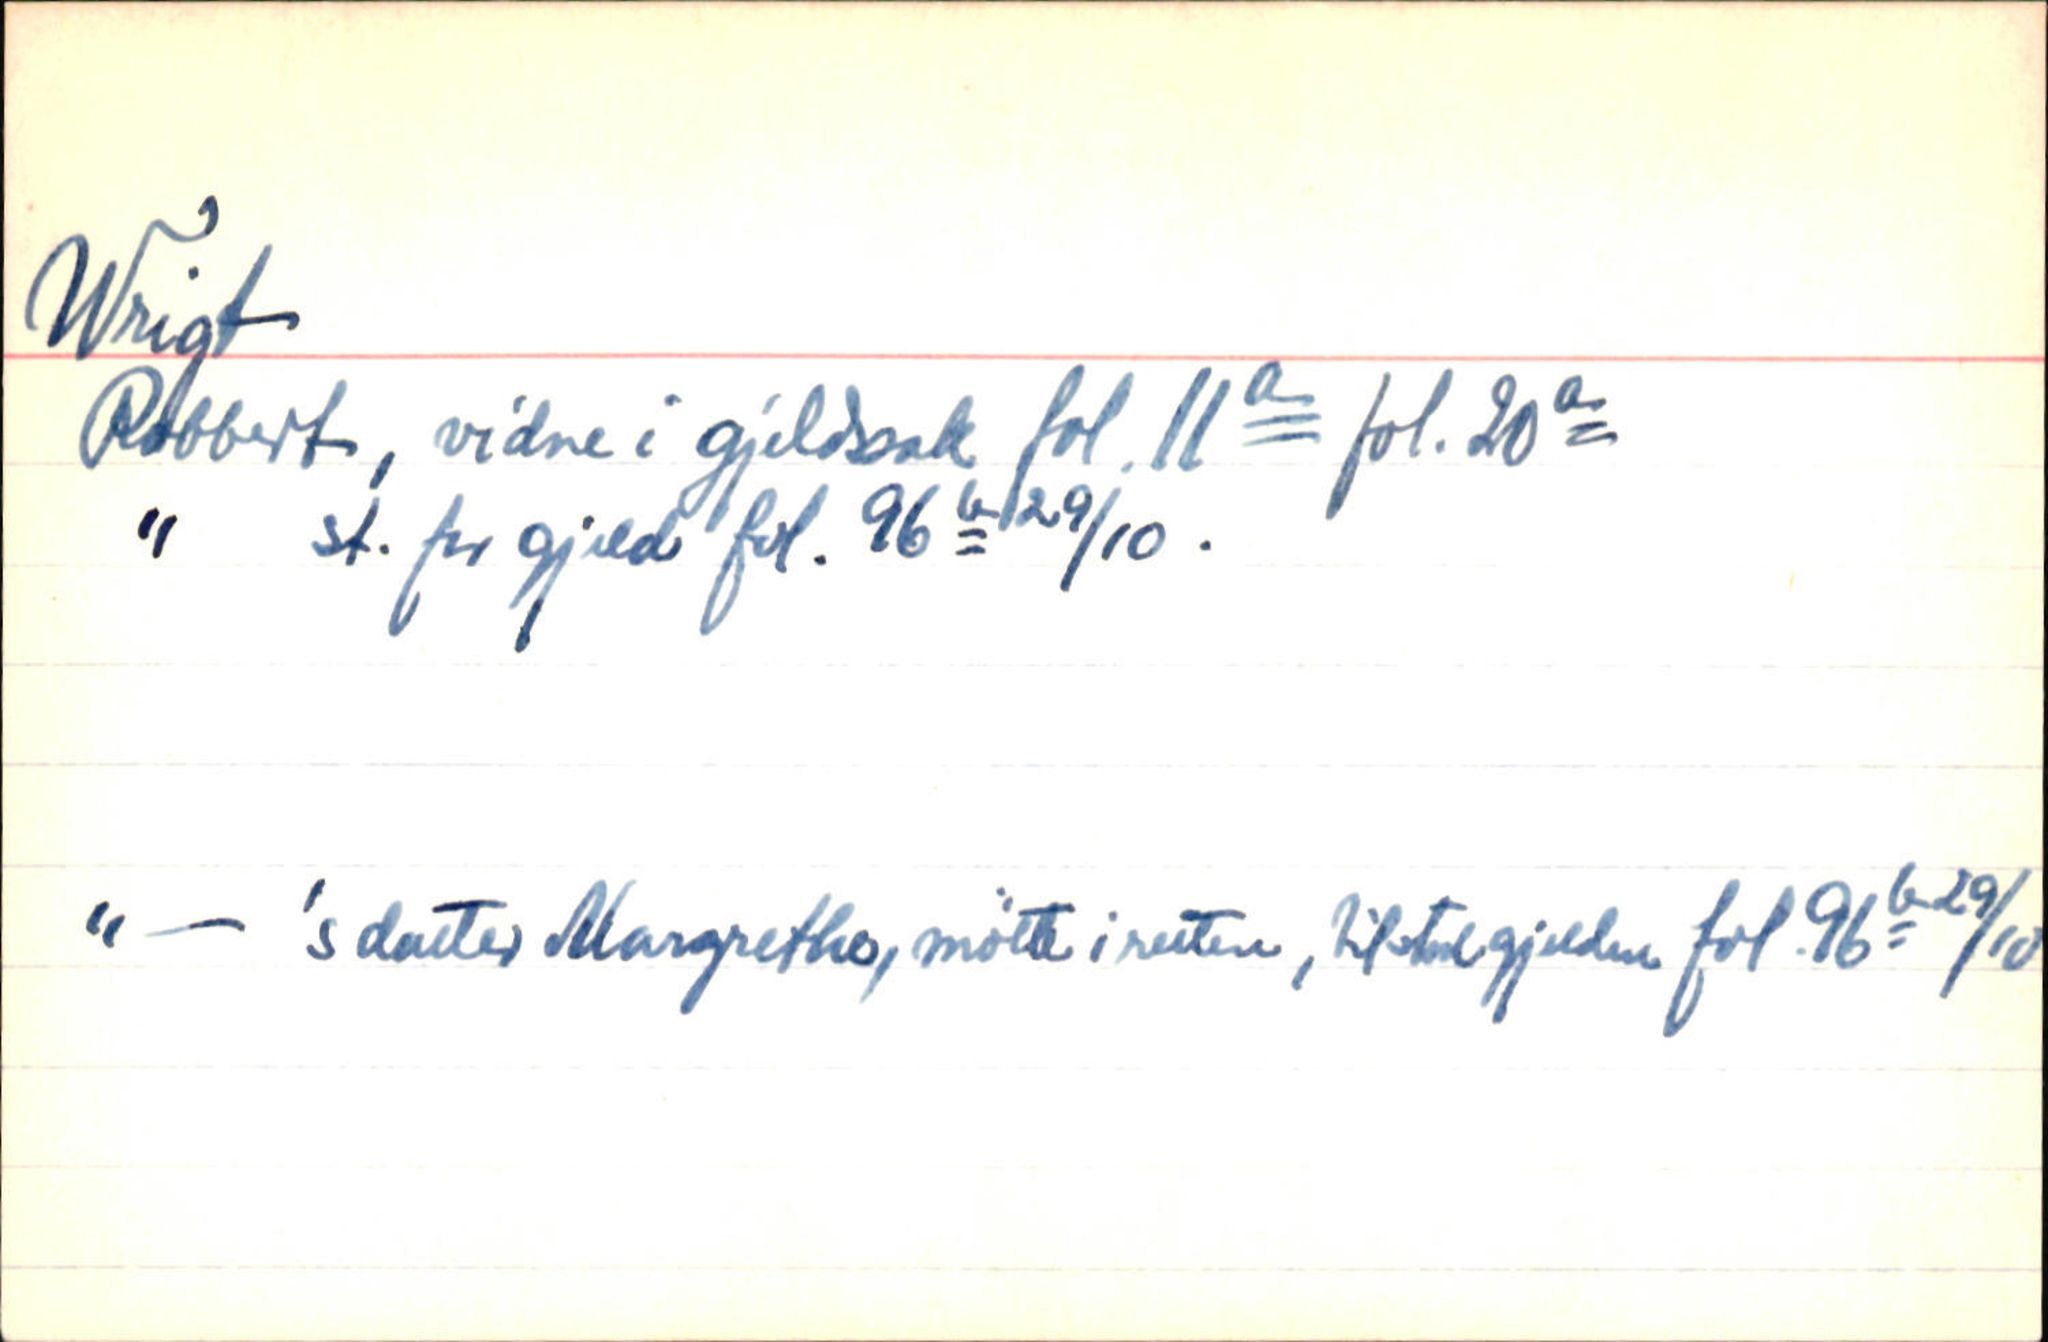 Wrigt
Robbert, vidne i gjeldssak fol. 11a fol. 20a
" st. for gjeld fol. 96b 29/10.
" — 's datter Margrethe, mötte i retten, tilstod gjelden fol. 96b 29/10